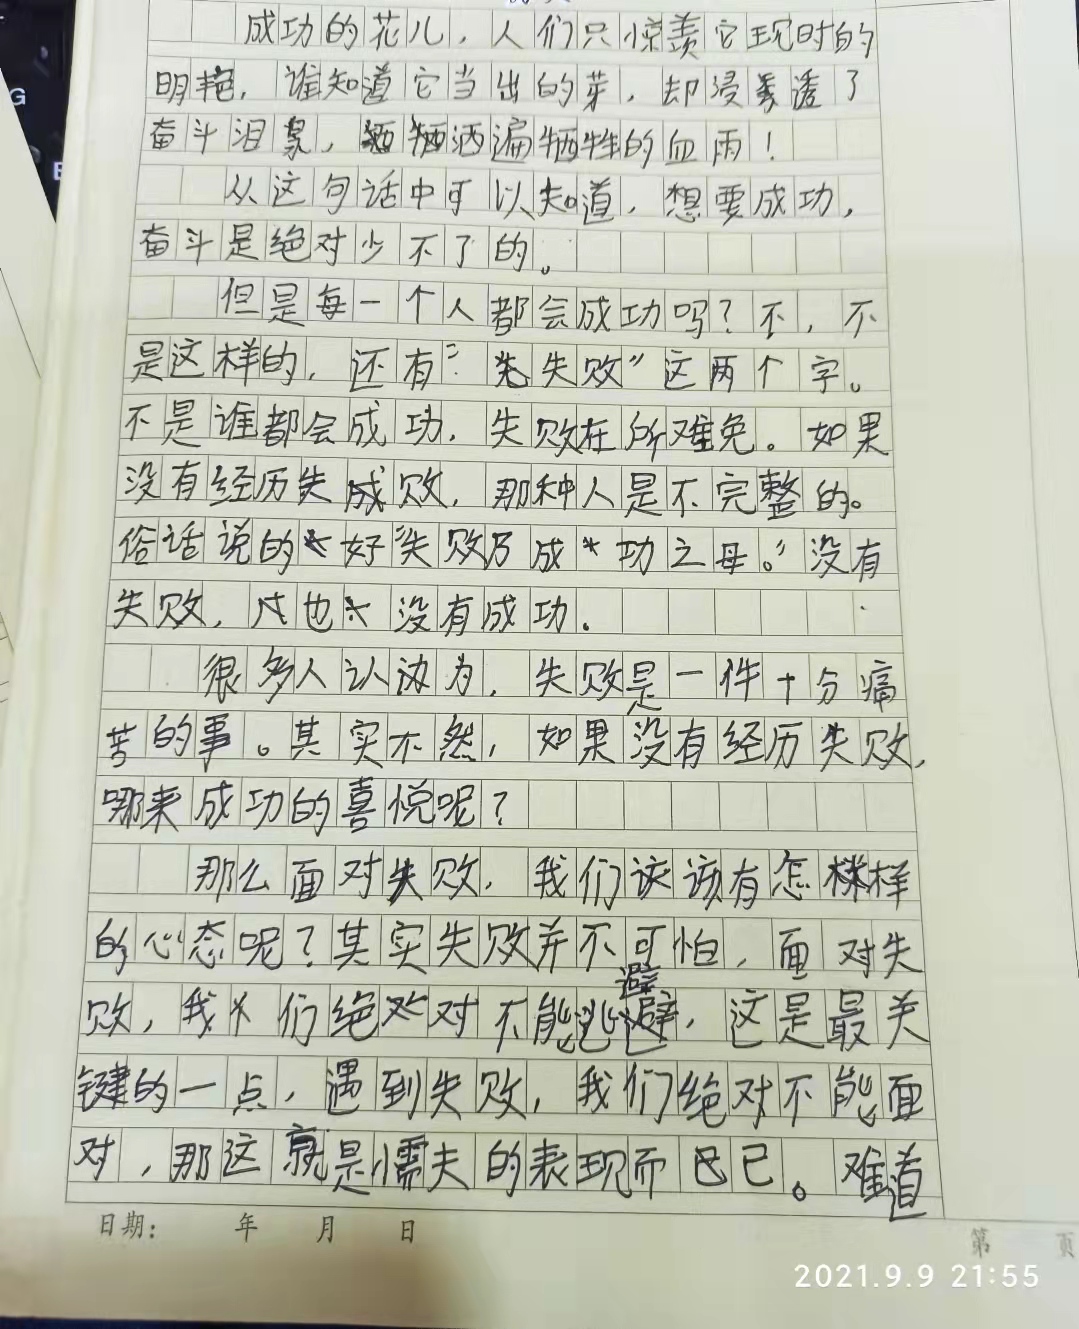 成功的花儿，人们只惊羡它现时的
明艳，谁知道它当出的芽，却浸透了
奋斗泪泉，洒遍牺牲的血雨！
从这句话中可以知道，想要成功，
奋斗是绝对少不了的。
但是每一个人都会成功吗？不，不
是这样的，还有“失败”这两个字。
不是谁都会成功，失败在所难免。如果
没有经历失败，那种人是不完整的。
俗话说的好“失败乃成功之母。”没有
失败，也没有成功．
很多人认为，失败是一件十分痛
苦的事。其实不然，如果没有经历失败，
哪来成功的喜悦呢？
那么面对失败，我们该该有怎样
的心态呢？其实失败并不可怕，面对失
败，我们绝对不能逃避，这是最关
键的一点，遇到失败，我们绝对不能面
对，那这就是懦夫的表现而已已。难道
日期： 年 月 日
第 页
2021.9.9 21:55
G